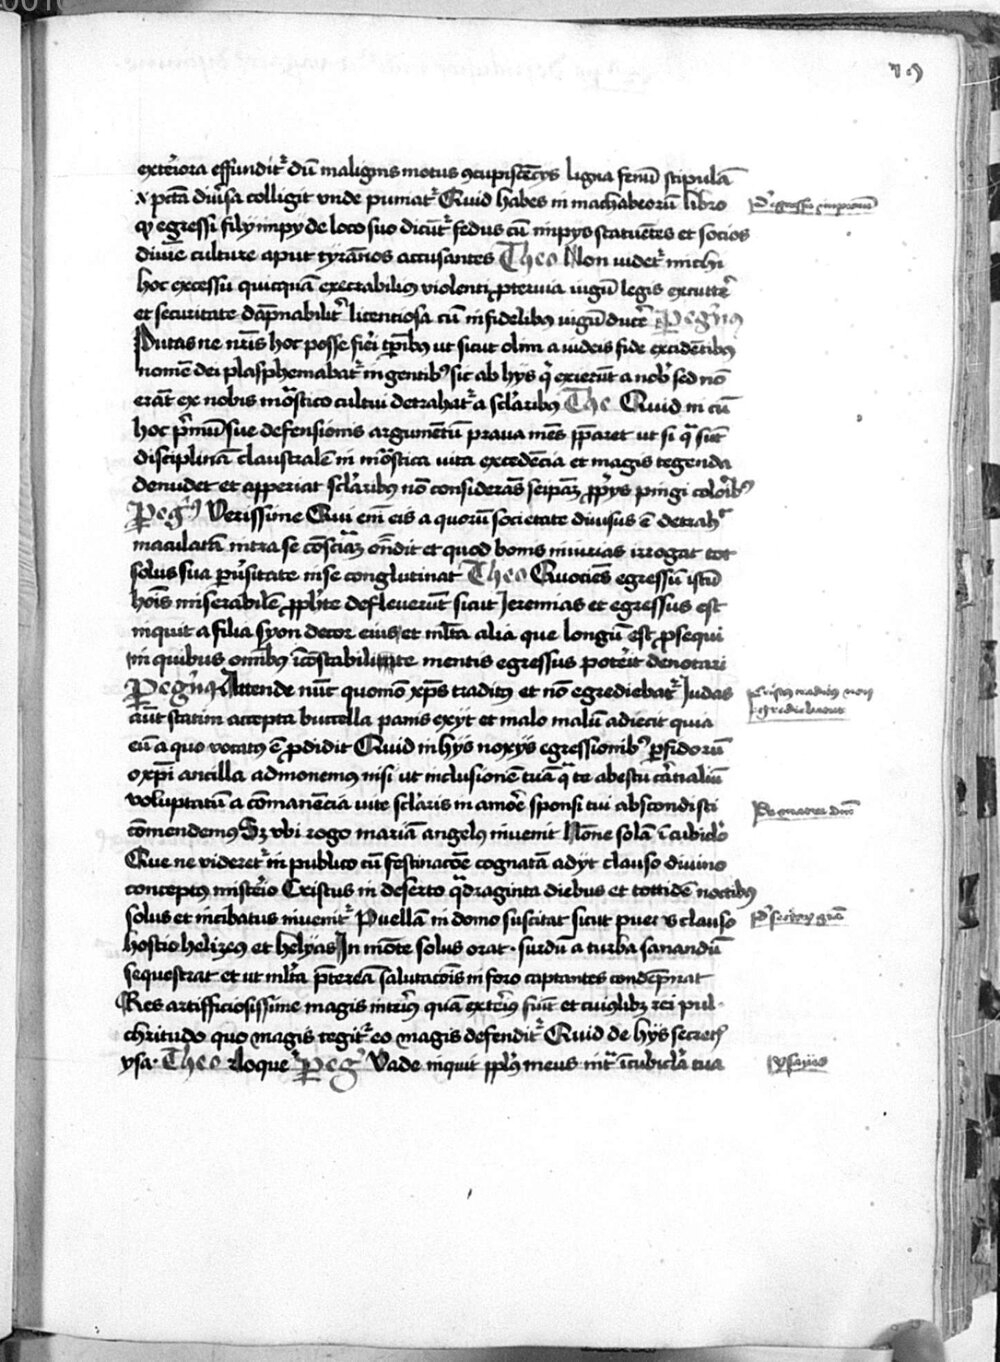 19
exteriora effundit᷑ dū malignis motus ꝯcupiscēcijs ligna fenū stipulā
x pctā diūsa colligit vnde puniat᷑ Quid habes in machabeorū libro
qꝫ egressi filij impij de loco suo dicūt᷑ fedus cū impijs statuētes et socios
diuīe culture aput tyrānos accusantes Theo Non uidet᷑ michi
hoc excessu quicquā execrabilius violenti ꝓteruia iugū legis excutt̄e
et securitate dāpnabilit̄ licentiosa cū infidelibꝰ iugū duc̄e Pegr̄inꝰ
Putas ne nr̄is hoc posse fieri tp̄ibꝰ ut sicut olim a iudeis fide excidētibꝰ
nomē dei plasphemabat᷑ in gentibꝰ sic ab hijs q̄ exierūt a nob̄ sed nō
erāt ex nobis mo̅stico cultui detrahat᷑ a scl̄aribꝰ The Quid ni cū
hoc p̄mū sue defensionis argumētū praua mēs p̄paret ut si q̄ sūt
disciplinā claustralē in mo̅stica uita excedēcia et magis tegenda
denudet et apperiat scl̄aribꝰ nō considerās seip̄aꝫ ꝓp̄ijs pingi colōibꝰ
Pegr̄ Verissime Qui em̄ eis a quorū societate diuisus ē detrah᷑
maculatā intra se cōsciāꝫ on̄dit et quod bonis iniurias irrogat tot
solus sua pūsitate in se conglutinat Theo Quociēs egressū istū
hoīs miserabilē ꝓph̄e defleuerūt sicut Jeremias et egressus est
inquit a filia syon decor eius et ml̄ta alia que longū est ꝓsequi
in quibus om̄ibꝰ īcōstabilitate mentis egressus pot̄eit denotari
Pegr̄inꝰ Attende nūc quomō xp̄s traditꝰ et nō egrediebat᷑ Judas
aūt statim accepta buccella panis exijt et malo malū adiecit quia
eū a quo vocatꝰ ē ꝓdidit Quid in hijs noxijs egressionibꝰ ꝑfidorū
o xp̄i ancilla admonemꝰ nisi ut inclusionē tuā q̄ te ab estu carnaliū
voluptatū a cōmanēcia uite scl̄aris in amor̄e sponsi tui abscondisti
cōmendemꝰ Sꝫ vbi rogo mariā angelꝰ inuenit Nōne solā ī cubicl̄o
Que ne videret᷑ in publico cū festinacōe cognatā adijt clauso diuino
conceptꝰ mist̄io Cristus in deserto q̄draginta diebus et tottidē noctibꝰ
solus et incibatus inuenit᷑ Puellā in domo suscitat sicut pueros clauso
hostio helizeꝰ et helyas In mōte solus orat · surdū a turba sanandū
sequestrat et ut ml̄ta p̄tereā salutacōis in foro captantes condēpnat
Res artifficiosissime magis inter̄iꝰ quā exter̄iꝰ fiūt et cuiꝰlibꝫ rei pul-
chritudo quo magis tegit᷑ eo magis defendit᷑ Quid de hijs secret̄
ysa · Theo eloquere Pegr̄ Vade inquit ppl̄s meus int᷑ ī cubicl̄a tua
De egressu impiorū
Cristus traditus non
egrediebatur
De matre dn̄i
ysayas